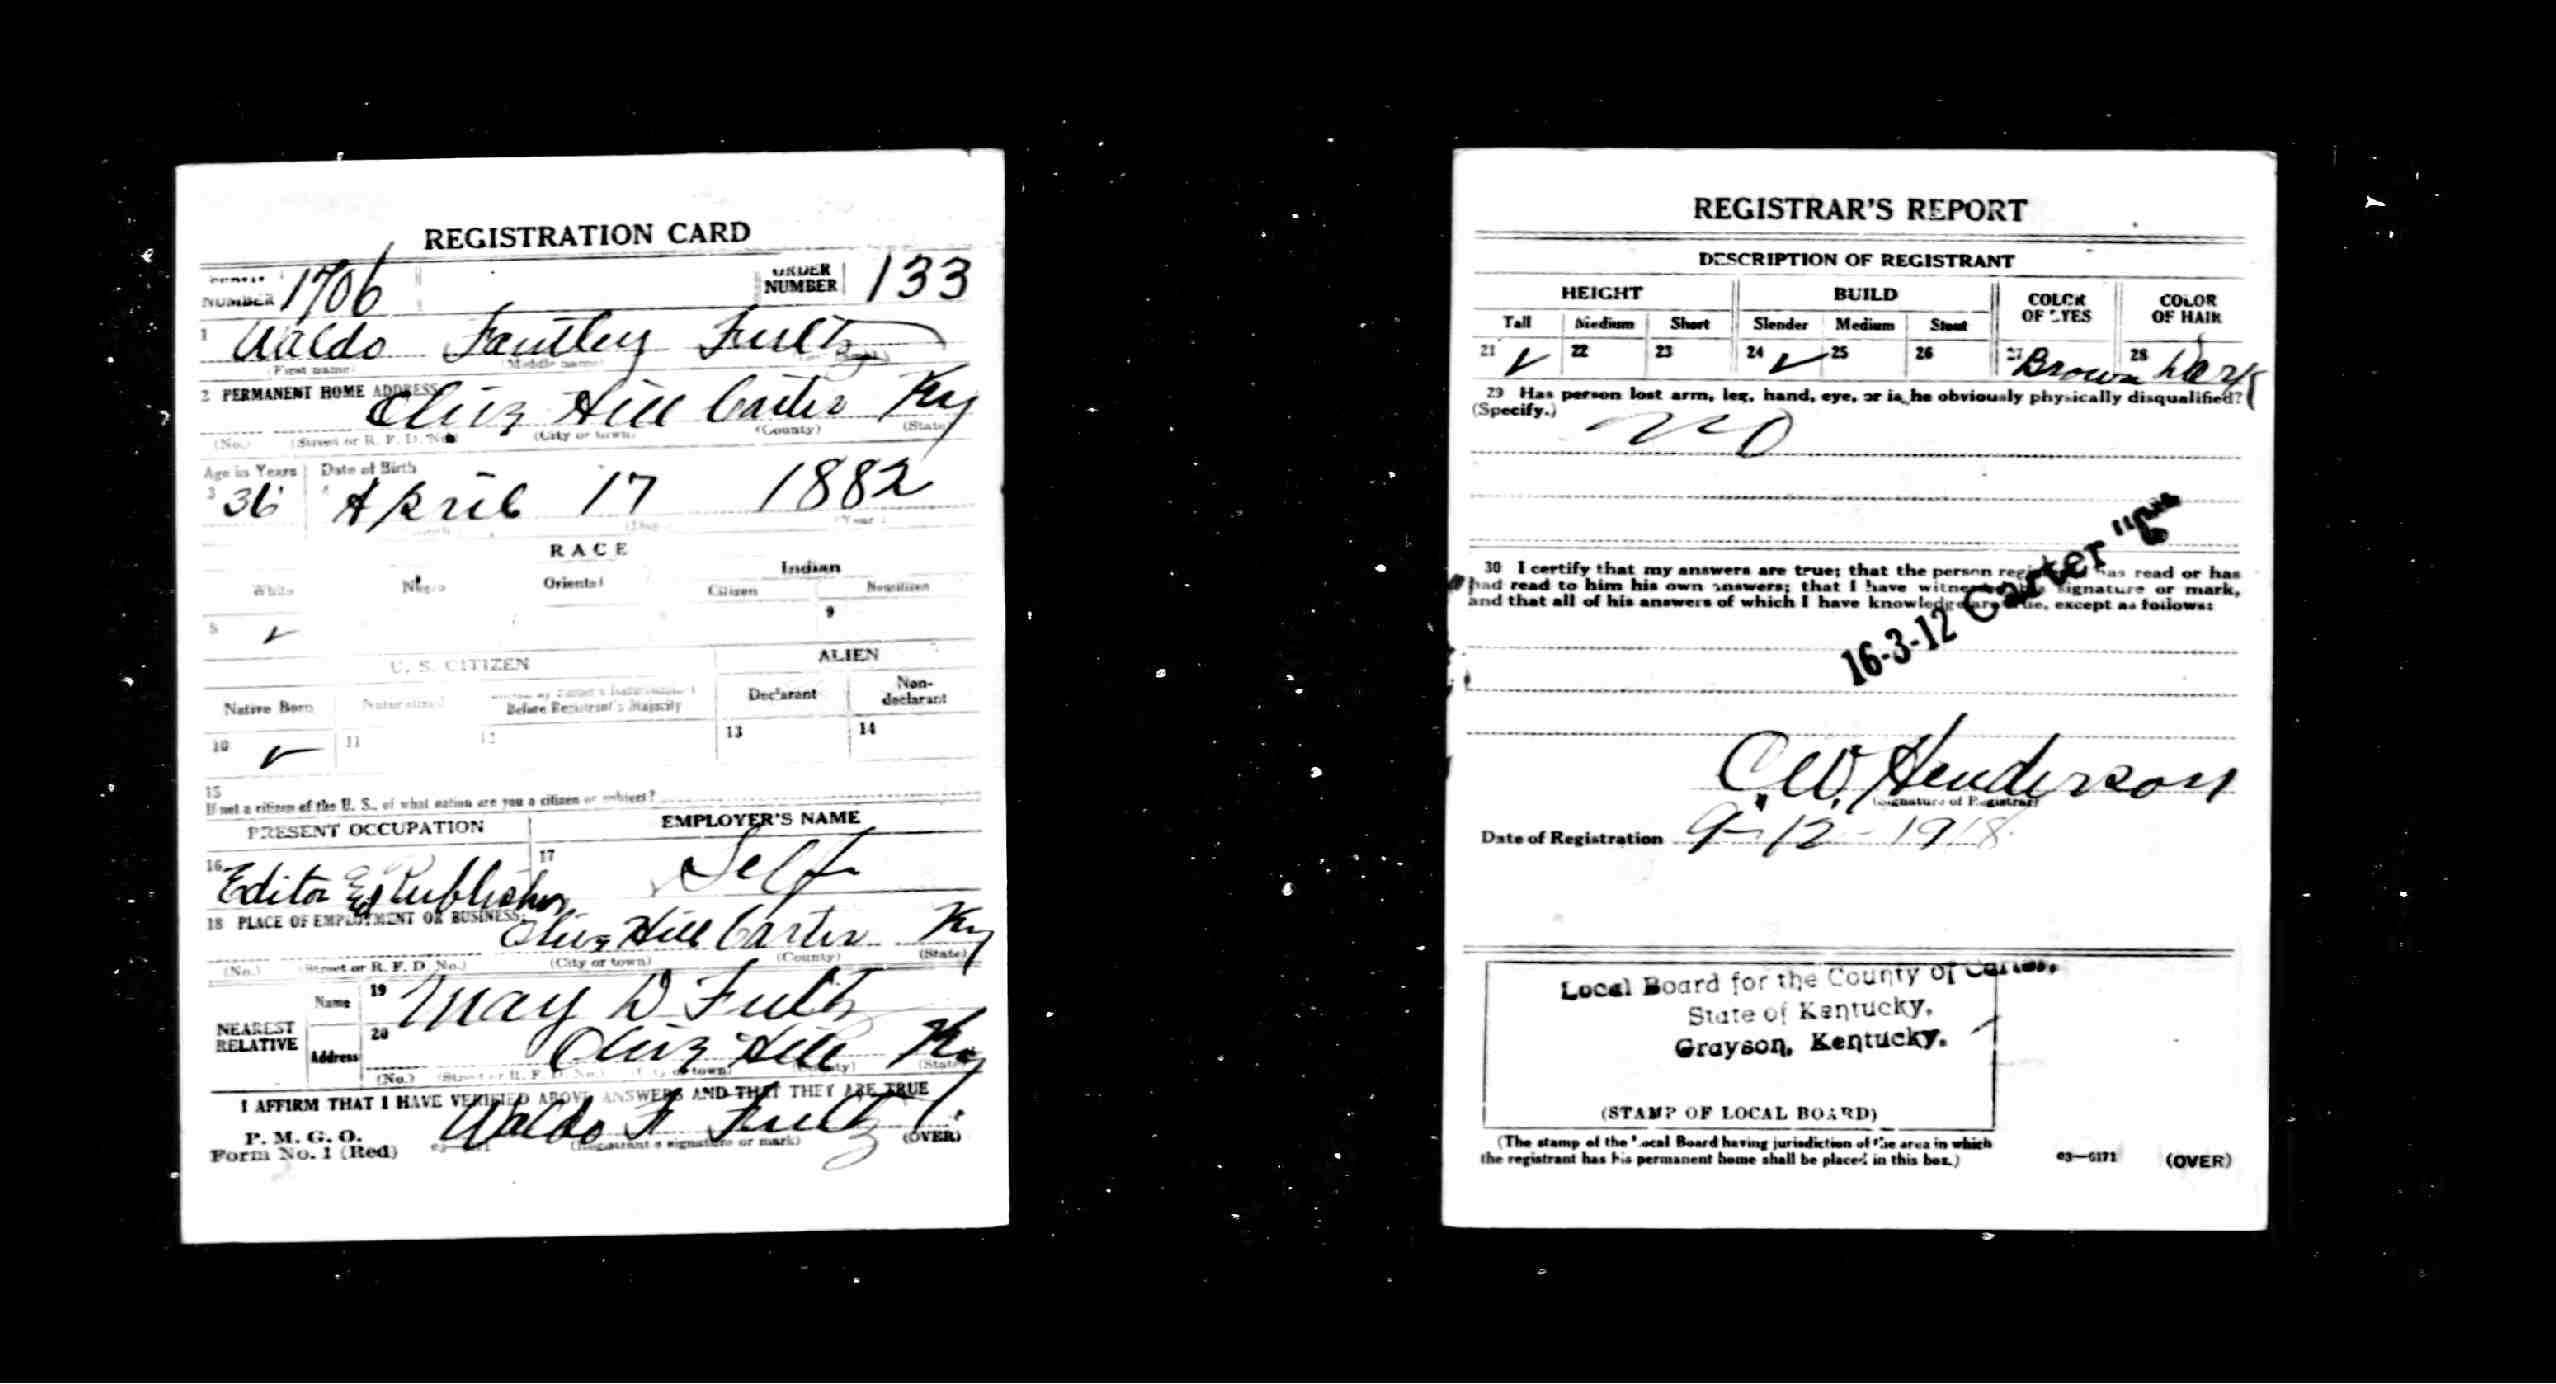 REGISTRATION CARD
NUMBER 1706 ORDER NUMBER 133
1 Waldo Fultz
(First name) (Middle name)
2 PERMANENT HOME ADDRESS
Olive Hill Carter Ky
(No.) (Street or R. F. D. No.) (City or town) (County) (State)
Age in Years Date of Birth
3 36 4 April 17 1882
(Day) (Year)
RACE
White Negro Oriental Indian
Citizen Noncitizen
5 ✓ 9
U. S. CITIZEN ALIEN
Native Born Naturalized Citizen by Father's Naturalization Before Registrant's Majority Declarant Non-declarant
10 ✓ 11 12 13 14
15
If not a citizen of the U. S., of what nation are you a citizen or subject?
PRESENT OCCUPATION EMPLOYER'S NAME
16 Editor & Publisher 17 Self
18 PLACE OF EMPLOYMENT OR BUSINESS:
Olive Hill Carter Ky
(No.) (Street or R. F. D. No.) (City or town) (County) (State)
NEAREST RELATIVE Name 19 May D Fultz
Address 20 Olive Hill Ky
(No.) (Street or R. F. D. No.) (City or town) (County) (State)
I AFFIRM THAT I HAVE VERIFIED ABOVE ANSWERS AND THAT THEY ARE TRUE
P. M. G. O.
Form No. 1 (Red) Waldo F Fultz
(Registrant's signature or mark) (OVER)
REGISTRAR'S REPORT
DESCRIPTION OF REGISTRANT
HEIGHT BUILD COLOR OF EYES COLOR OF HAIR
Tall Medium Short Slender Medium Stout
21 ✓ 22 23 24 ✓ 25 26 27 Brown 28 Dark
29 Has person lost arm, leg, hand, eye, or is he obviously physically disqualified?
(Specify.) no
30 I certify that my answers are true; that the person registered has read or has
had read to him his own answers; that I have witnessed his signature or mark,
and that all of his answers of which I have knowledge are true, except as follows:
16-3-12 Carter
C. W. Henderson
(Signature of Registrar)
Date of Registration 9-12-1918
Local Board for the County of Carter,
State of Kentucky,
Grayson, Kentucky.
(STAMP OF LOCAL BOARD)
(The stamp of the Local Board having jurisdiction of the area in which
the registrant has his permanent home shall be placed in this box.)
03—6171 (OVER)